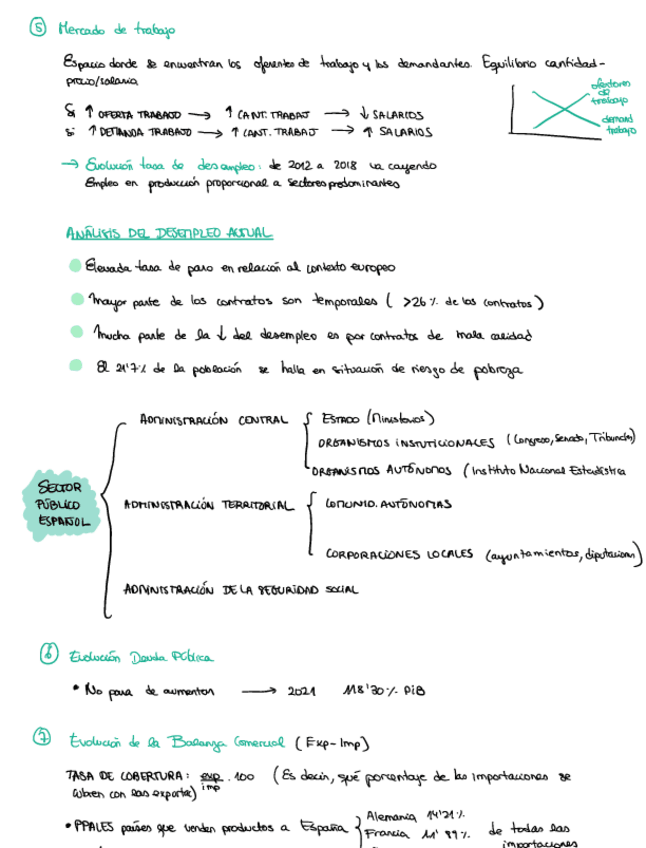 5 Mercado de trabajo
Espacio donde se encuentran los oferentes de trabajo y los demandantes. Equilibrio cantidad-
precio/salario.
Si ↑ OFERTA TRABAJO → ↑ CANT. TRABAJ → ↓ SALARIOS
si ↑ DEMANDA TRABAJO → ↑ CANT. TRABAJ → ↑ SALARIOS
ofertores
de
trabajo
demand
trabajo
→ Evolución tasa de desempleo: de 2012 a 2018 va cayendo
Empleo en producción proporcional a sectores predominantes
ANÁLISIS DEL DESEMPLEO ACTUAL
Elevada tasa de paro en relación al contexto europeo
Mayor parte de los contratos son temporales ( >26% de los contratos)
Mucha parte de la ↓ del desempleo es por contratos de mala calidad
El 21'7% de la población se halla en situación de riesgo de pobreza
SECTOR
PÚBLICO
ESPAÑOL
ADMINISTRACIÓN CENTRAL { ESTADO (Ministerios)
ORGANISMOS INSTUTICIONALES (Congreso, Senado, Tribunales)
ORGANISMOS AUTÓNOMOS (Instituto Nacional Estadística
ADMINISTRACIÓN TERRITORIAL { COMUNID. AUTÓNOMAS
CORPORACIONES LOCALES (ayuntamientos, diputaciones)
ADMINISTRACIÓN DE LA SEGURIDAD SOCIAL
6 Evolución Deuda Pública
• No para de aumentar → 2021 118'30% PIB
7 Evolución de la Balanza Comercial (Exp-Imp)
TASA DE COBERTURA: exp/imp . 100 (Es decir, qué porcentaje de las importaciones se
cubren con las exportac)
• PPALES países que venden productos a España { Alemania 14'21%
Francia 11'89% de todas las
importaciones